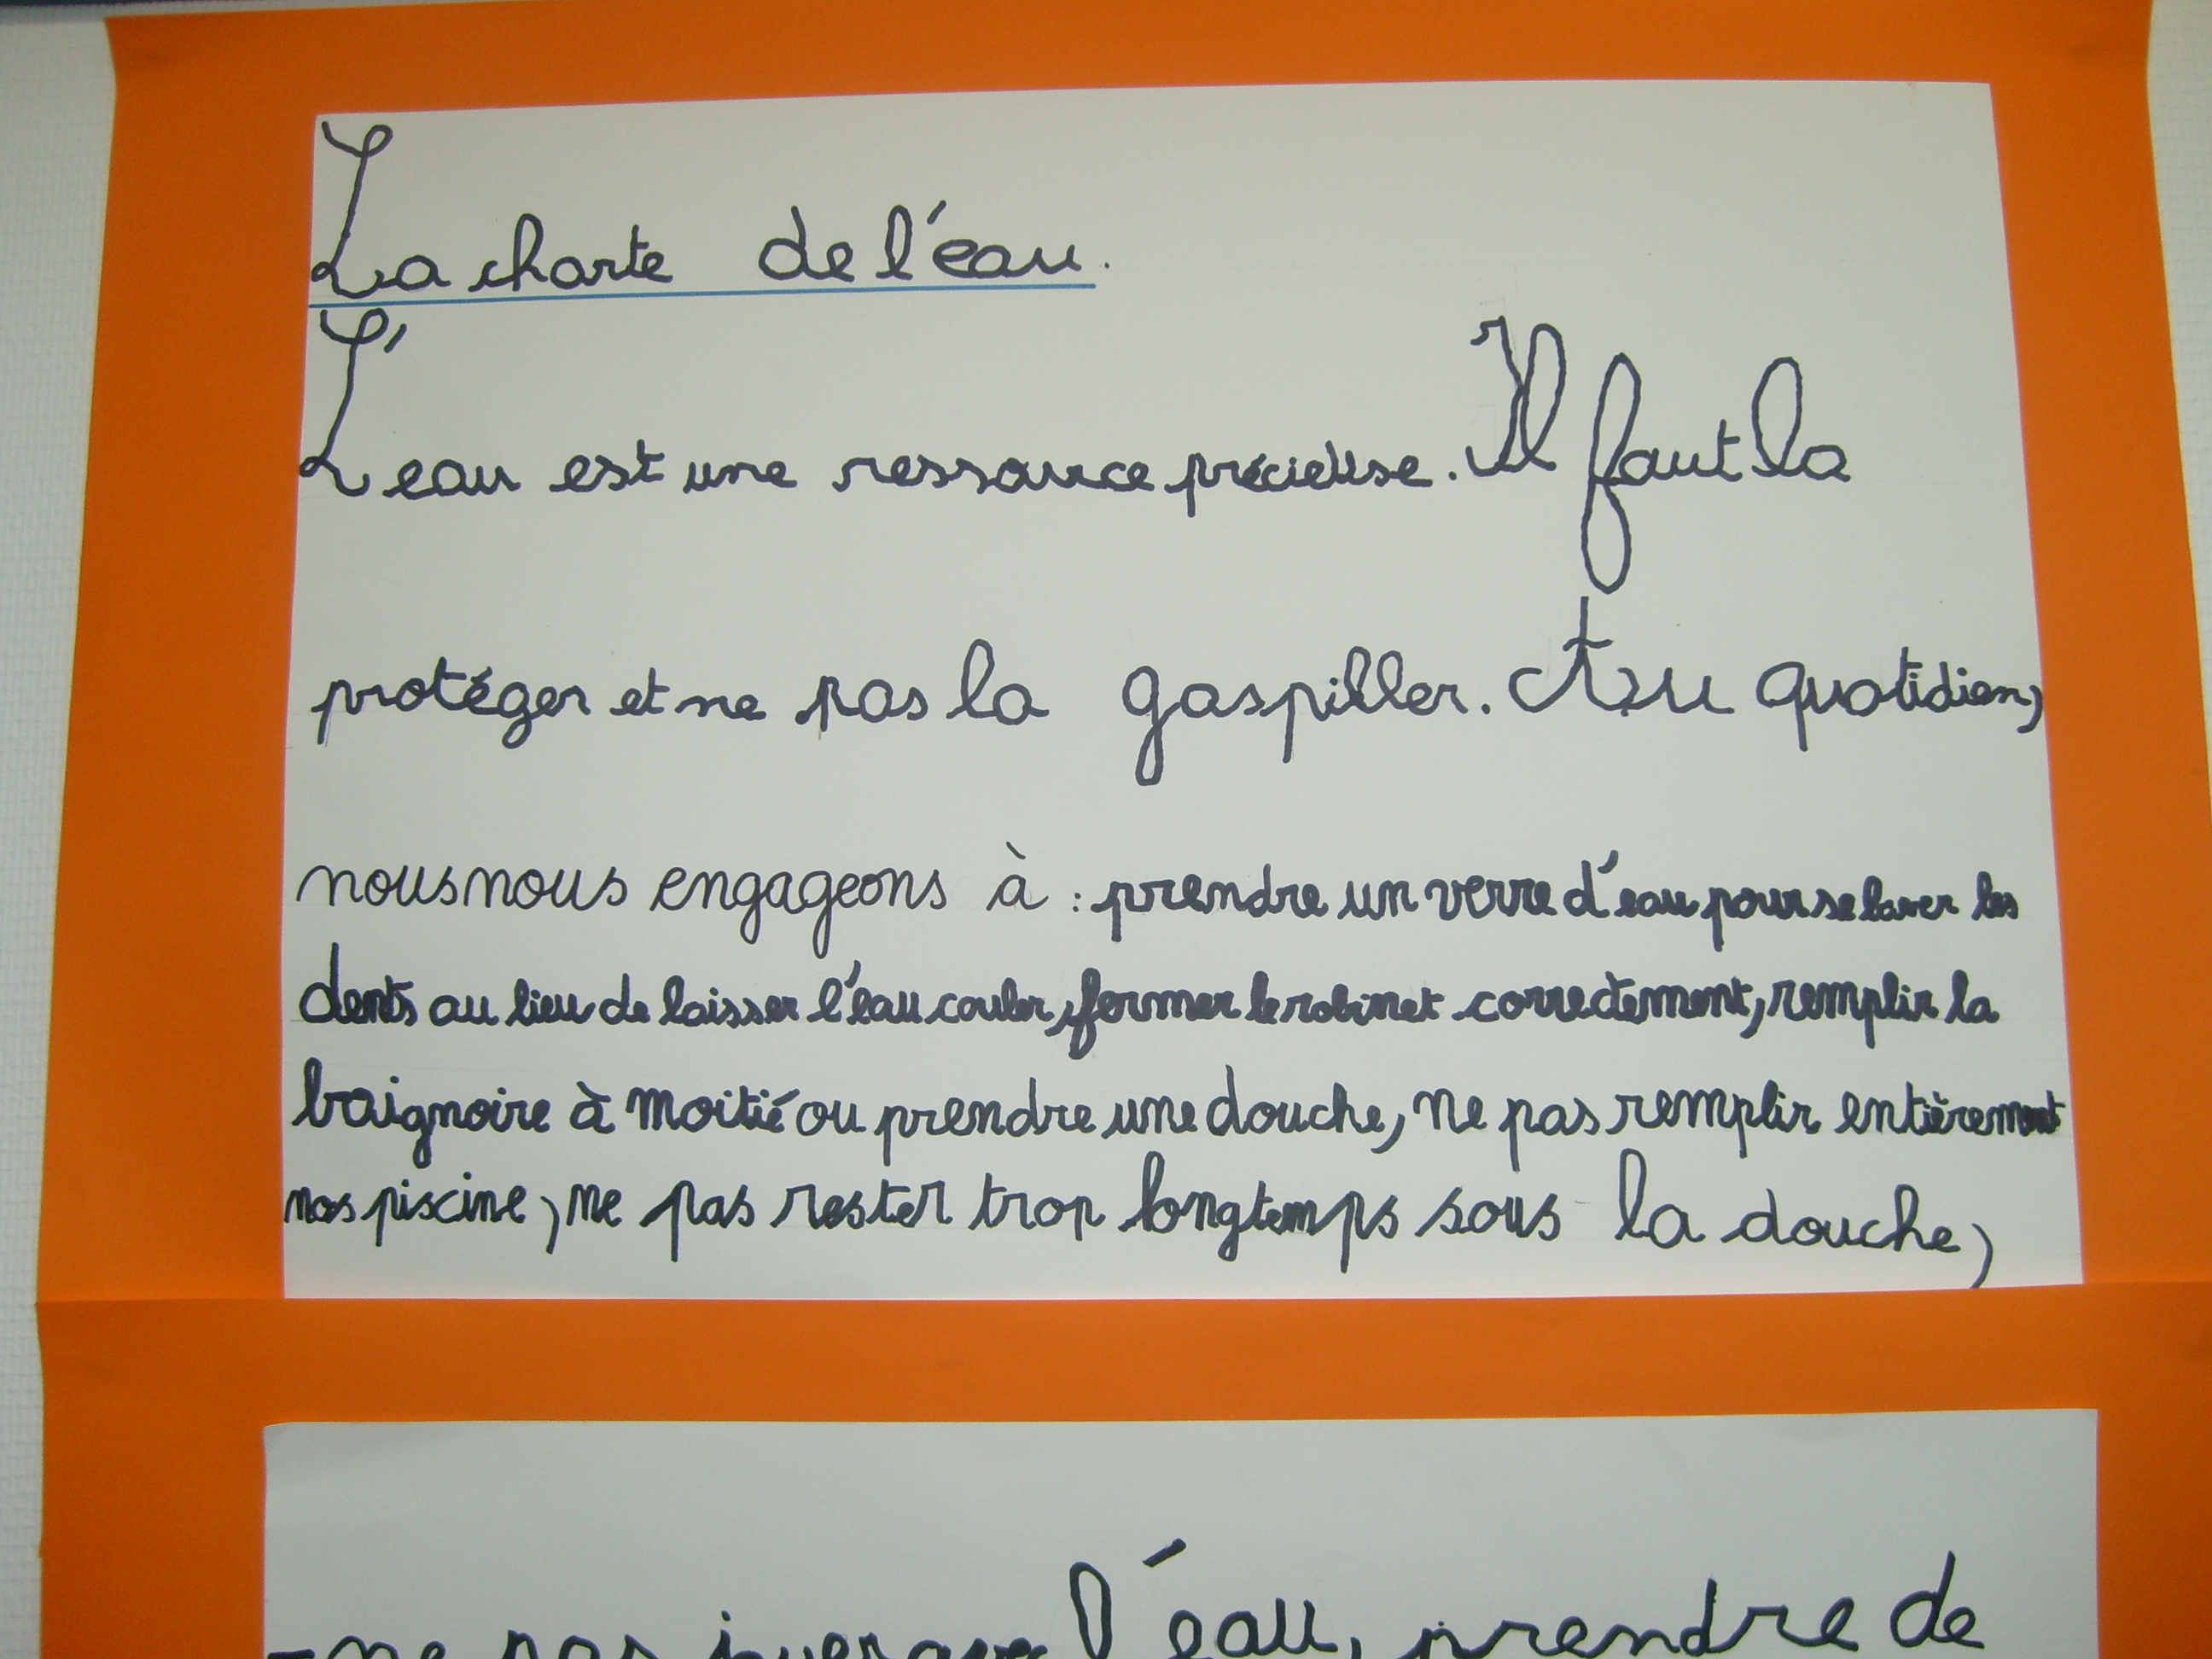 La charte de l'eau.
L'eau est une ressource précieuse. Il faut la
protéger et ne pas la gaspiller. Au quotidien,
nous nous engageons à : prendre un verre d'eau pour se laver les
dents au lieu de laisser l'eau couler, fermer le robinet correctement, remplir la
baignoire à moitié ou prendre une douche, ne pas remplir entièrement
nos piscine, ne pas rester trop longtemps sous la douche,
-ne pas jouer avec l'eau, prendre de